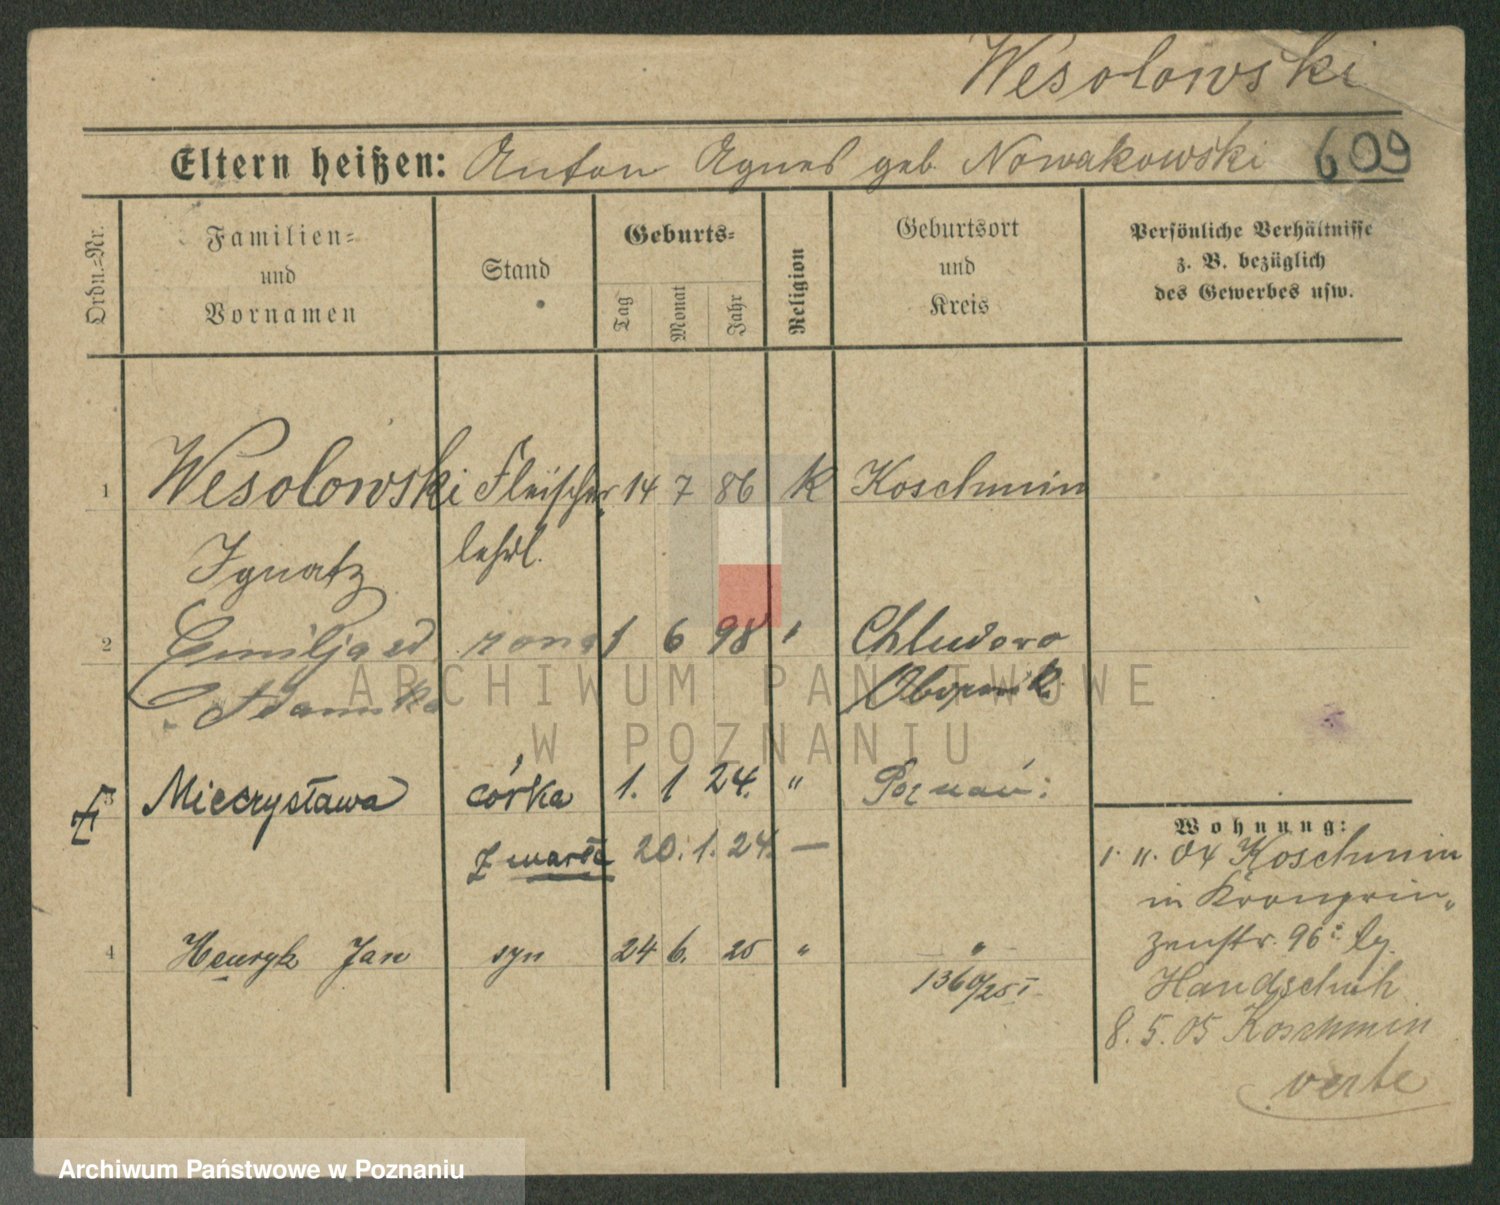 Wesolowski
Eltern heißen: Anton Agnes geb. Nowakowski 609
Ordn.=Nr.
Familien=
und
Vornamen
Stand
Geburts=
Tag
Monat
Jahr
Religion
Geburtsort
und
Kreis
Persönliche Verhältnisse
z. B. bezüglich
des Gewerbes usw.
1 Wesolowski Fleischer 14 7 86 K Koschmin
Ignatz lehrl.
2 Emilja żona 1 6 98 " Chludowo
Obornik
3 Mieczysława córka 1. 1 24. " Poznań:
zmarła 20. 1. 24. —
4 Henryk Jan syn 24 6. 25 " "
1360/25 I
Wohnung:
1. 11. 04 Koschmin
in Kronprin„
zenstr. 96 
Handschuh
8. 5. 05 Koschmin
verte
ARCHIWUM PAŃSTWOWE
W POZNANIU
Archiwum Państwowe w Poznaniu